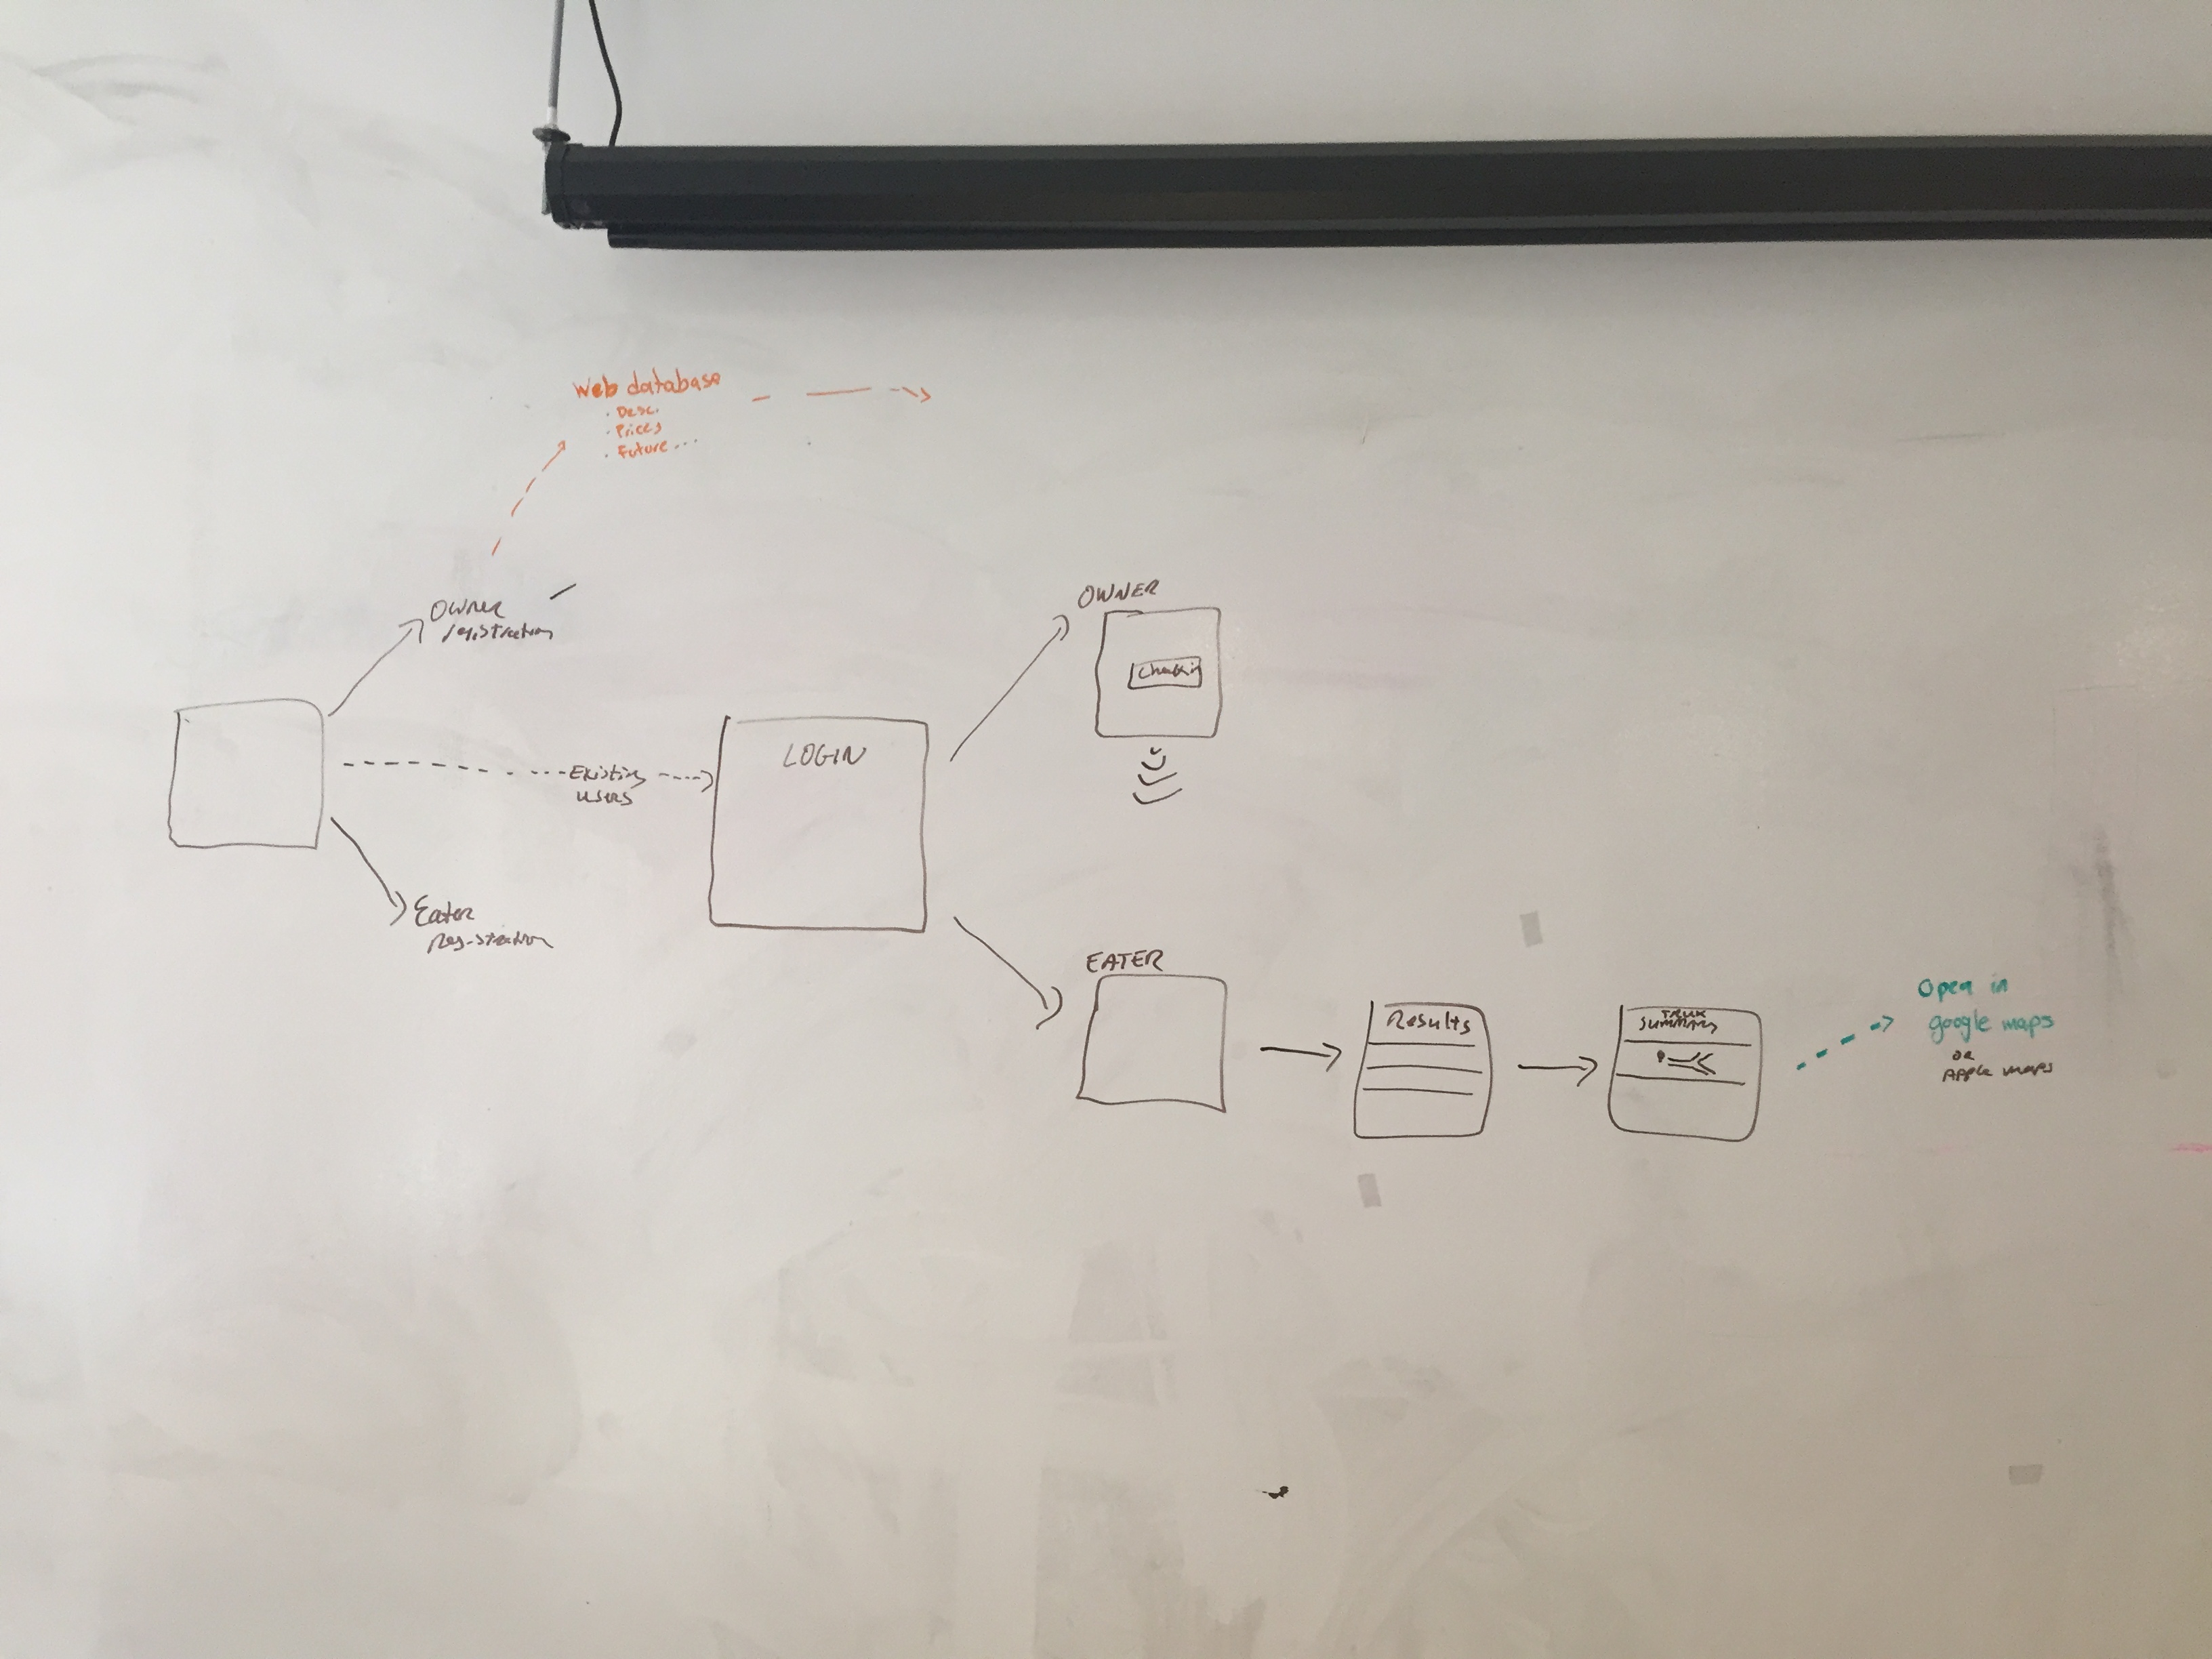 Web database
· Desc.
· Prices
· Future...
OWNER
registration
Existing
users
Eater
Registration
LOGIN
OWNER
Checkin
EATER
Results
TRUK
SUMMARY
Open in
google maps
OR
Apple maps